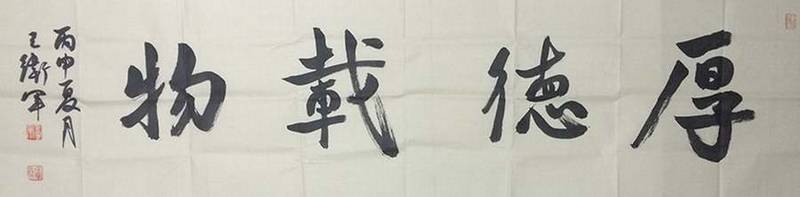 厚德載物
丙申夏月
王衛軍